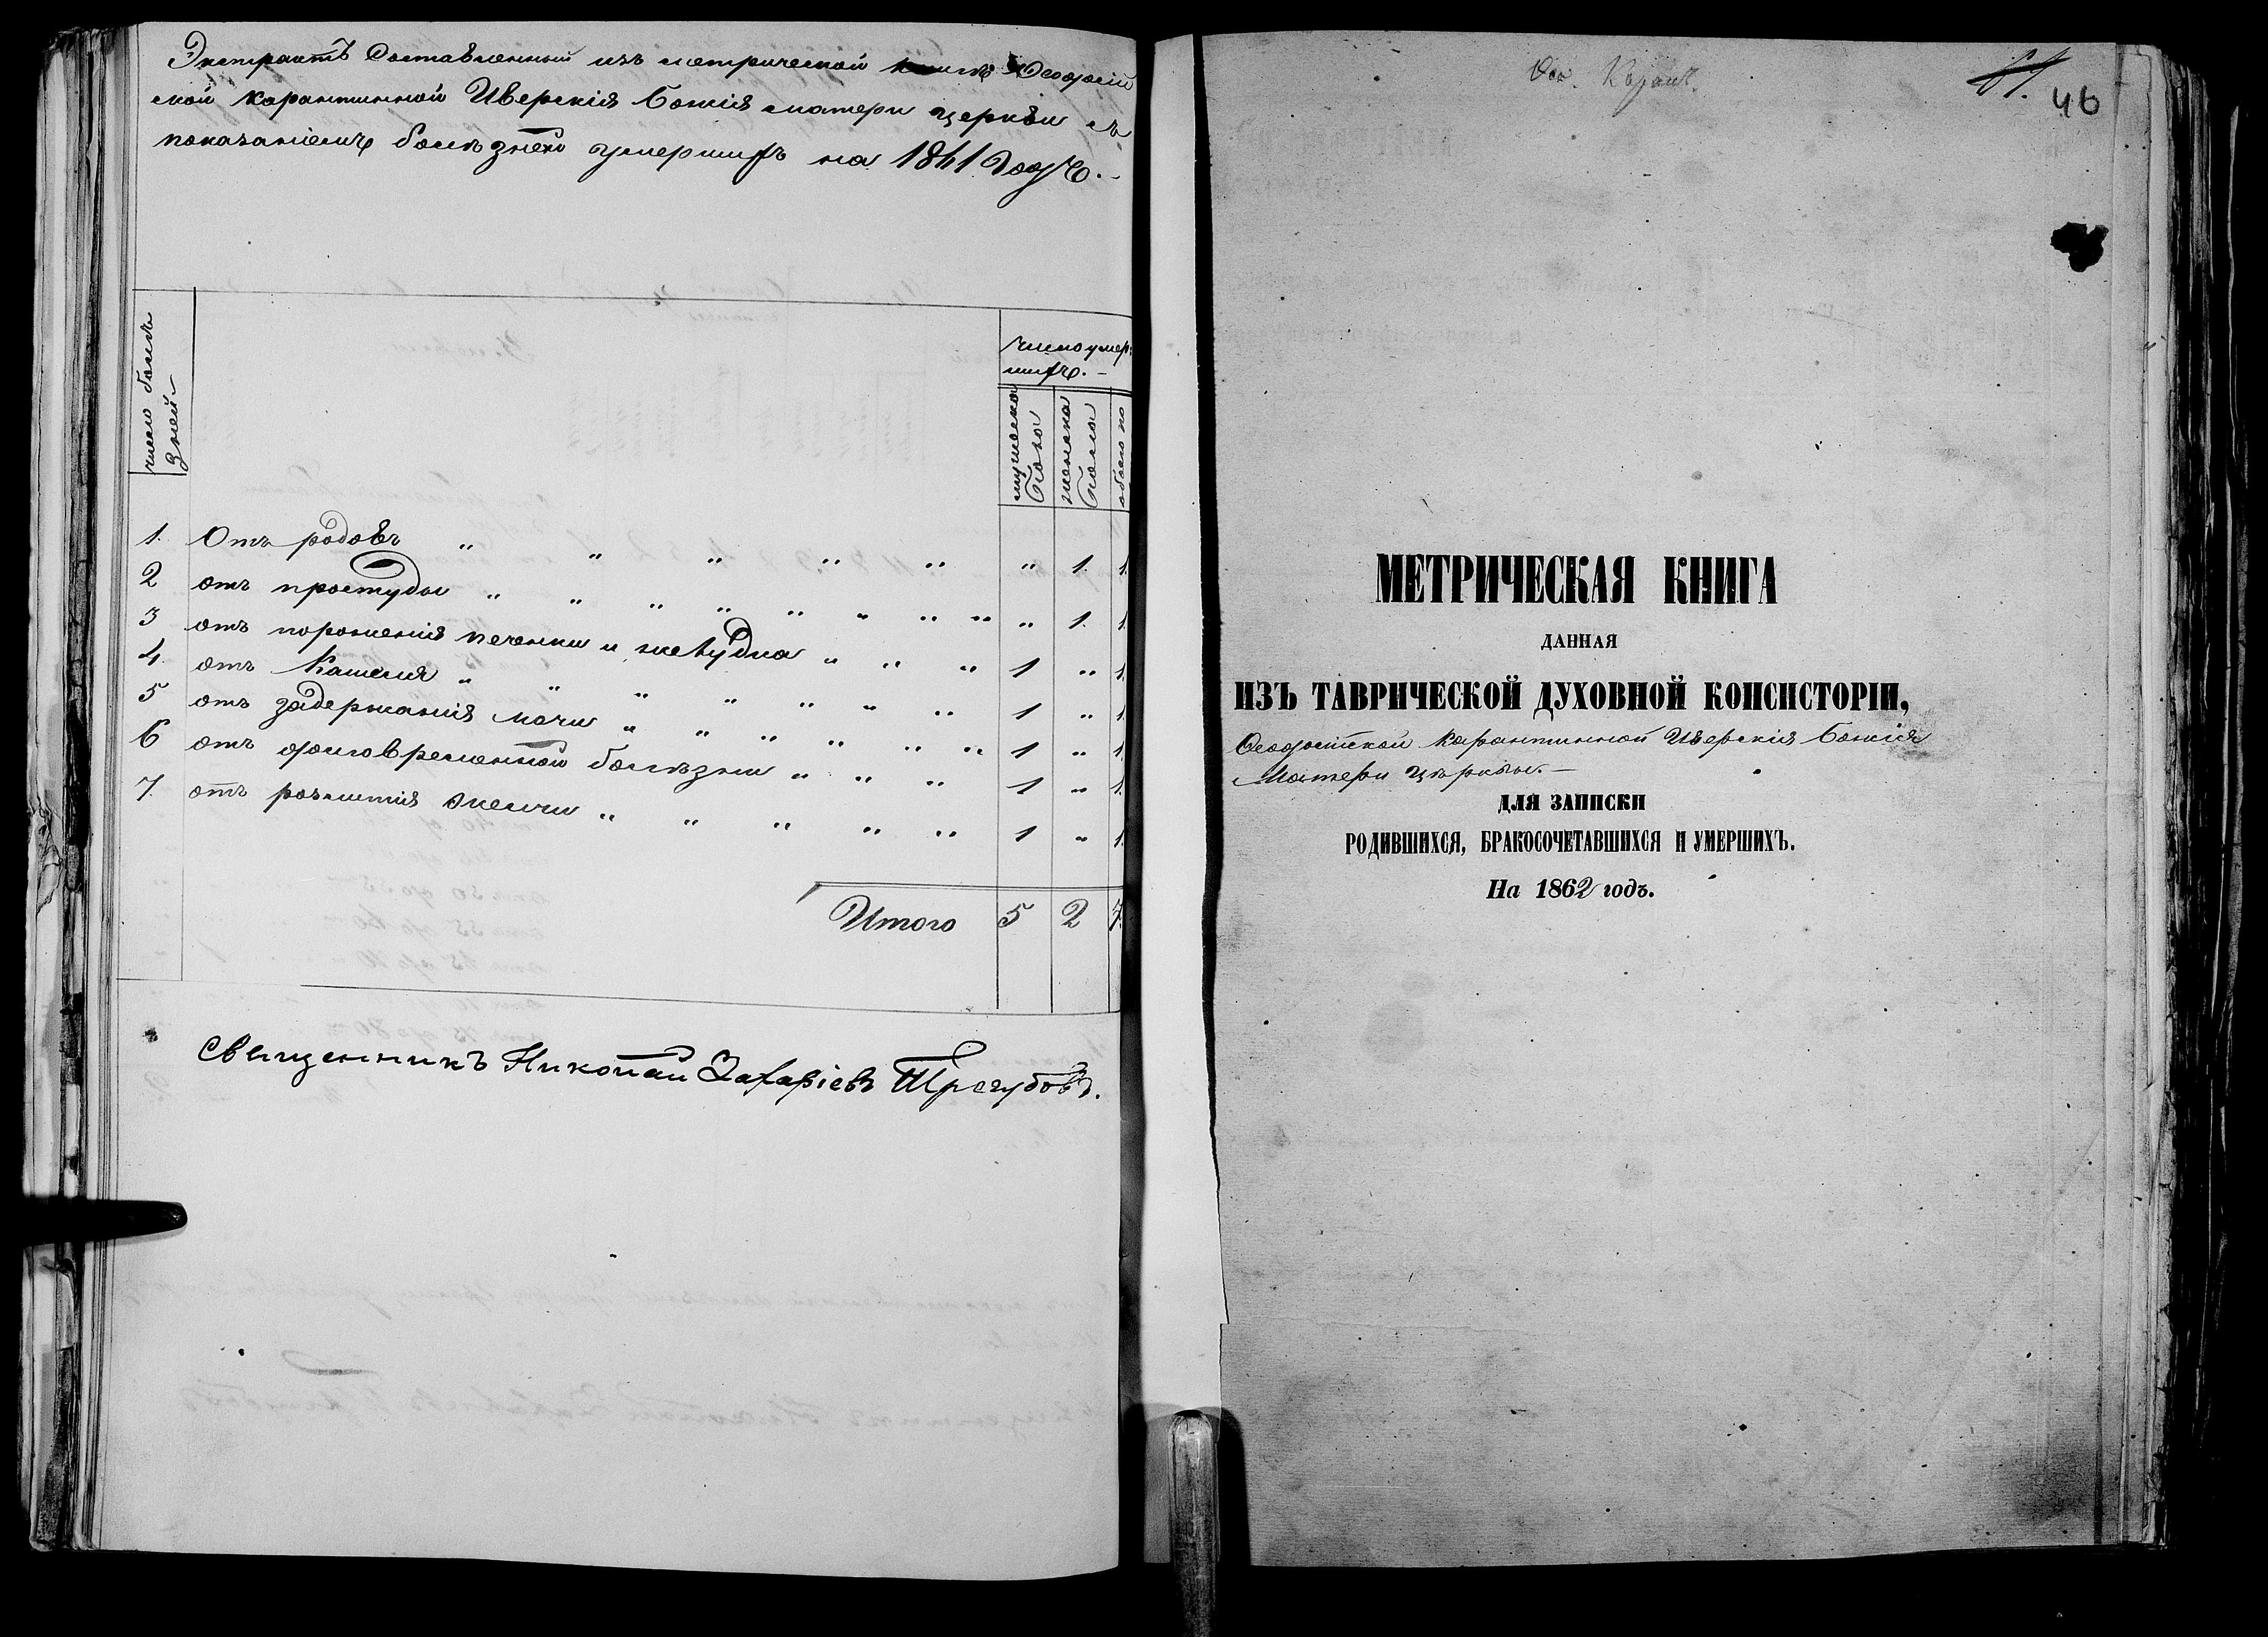 Экстрактъ составленный изъ метрической книги Ѳеодосій
ской карантинной Иверскія Божія матери церкви съ
показаніемъ болѣзней умершихъ на 1861 годъ.
число болѣ
зней
число умер
шихъ.
мужеска
пола
женска
пола
обоего по
1. Отъ родовъ " " " " " " 1. 1.
2 отъ простуды " " " " " " " " " 1. 1.
3 отъ пораженія печенки и желудка " " " 1 " 1.
4. отъ Кашеля " " " " " " " 1 " 1.
5 отъ задержанія мочи " " " " " " 1 " 1.
6 отъ долговременной болѣзни " " " 1 " 1.
7. отъ разлитія желчи " " " " " 1 " 1.
Итого 5 2 7.
Священникъ Николай Захаріевъ Трегубовъ.
Ѳео. Каран.
46
МЕТРИЧЕСКАЯ КНИГА
ДАННАЯ
ИЗЪ ТАВРИЧЕСКОЙ ДУХОВНОЙ КОНСИСТОРІИ,
Ѳеодосійской Карантинной Иверскія Божія
Матери церкви.—
ДЛЯ ЗАПИСКИ
РОДИВШИХСЯ, БРАКОСОЧЕТАВШИХСЯ И УМЕРШИХЪ.
На 1862 годъ.